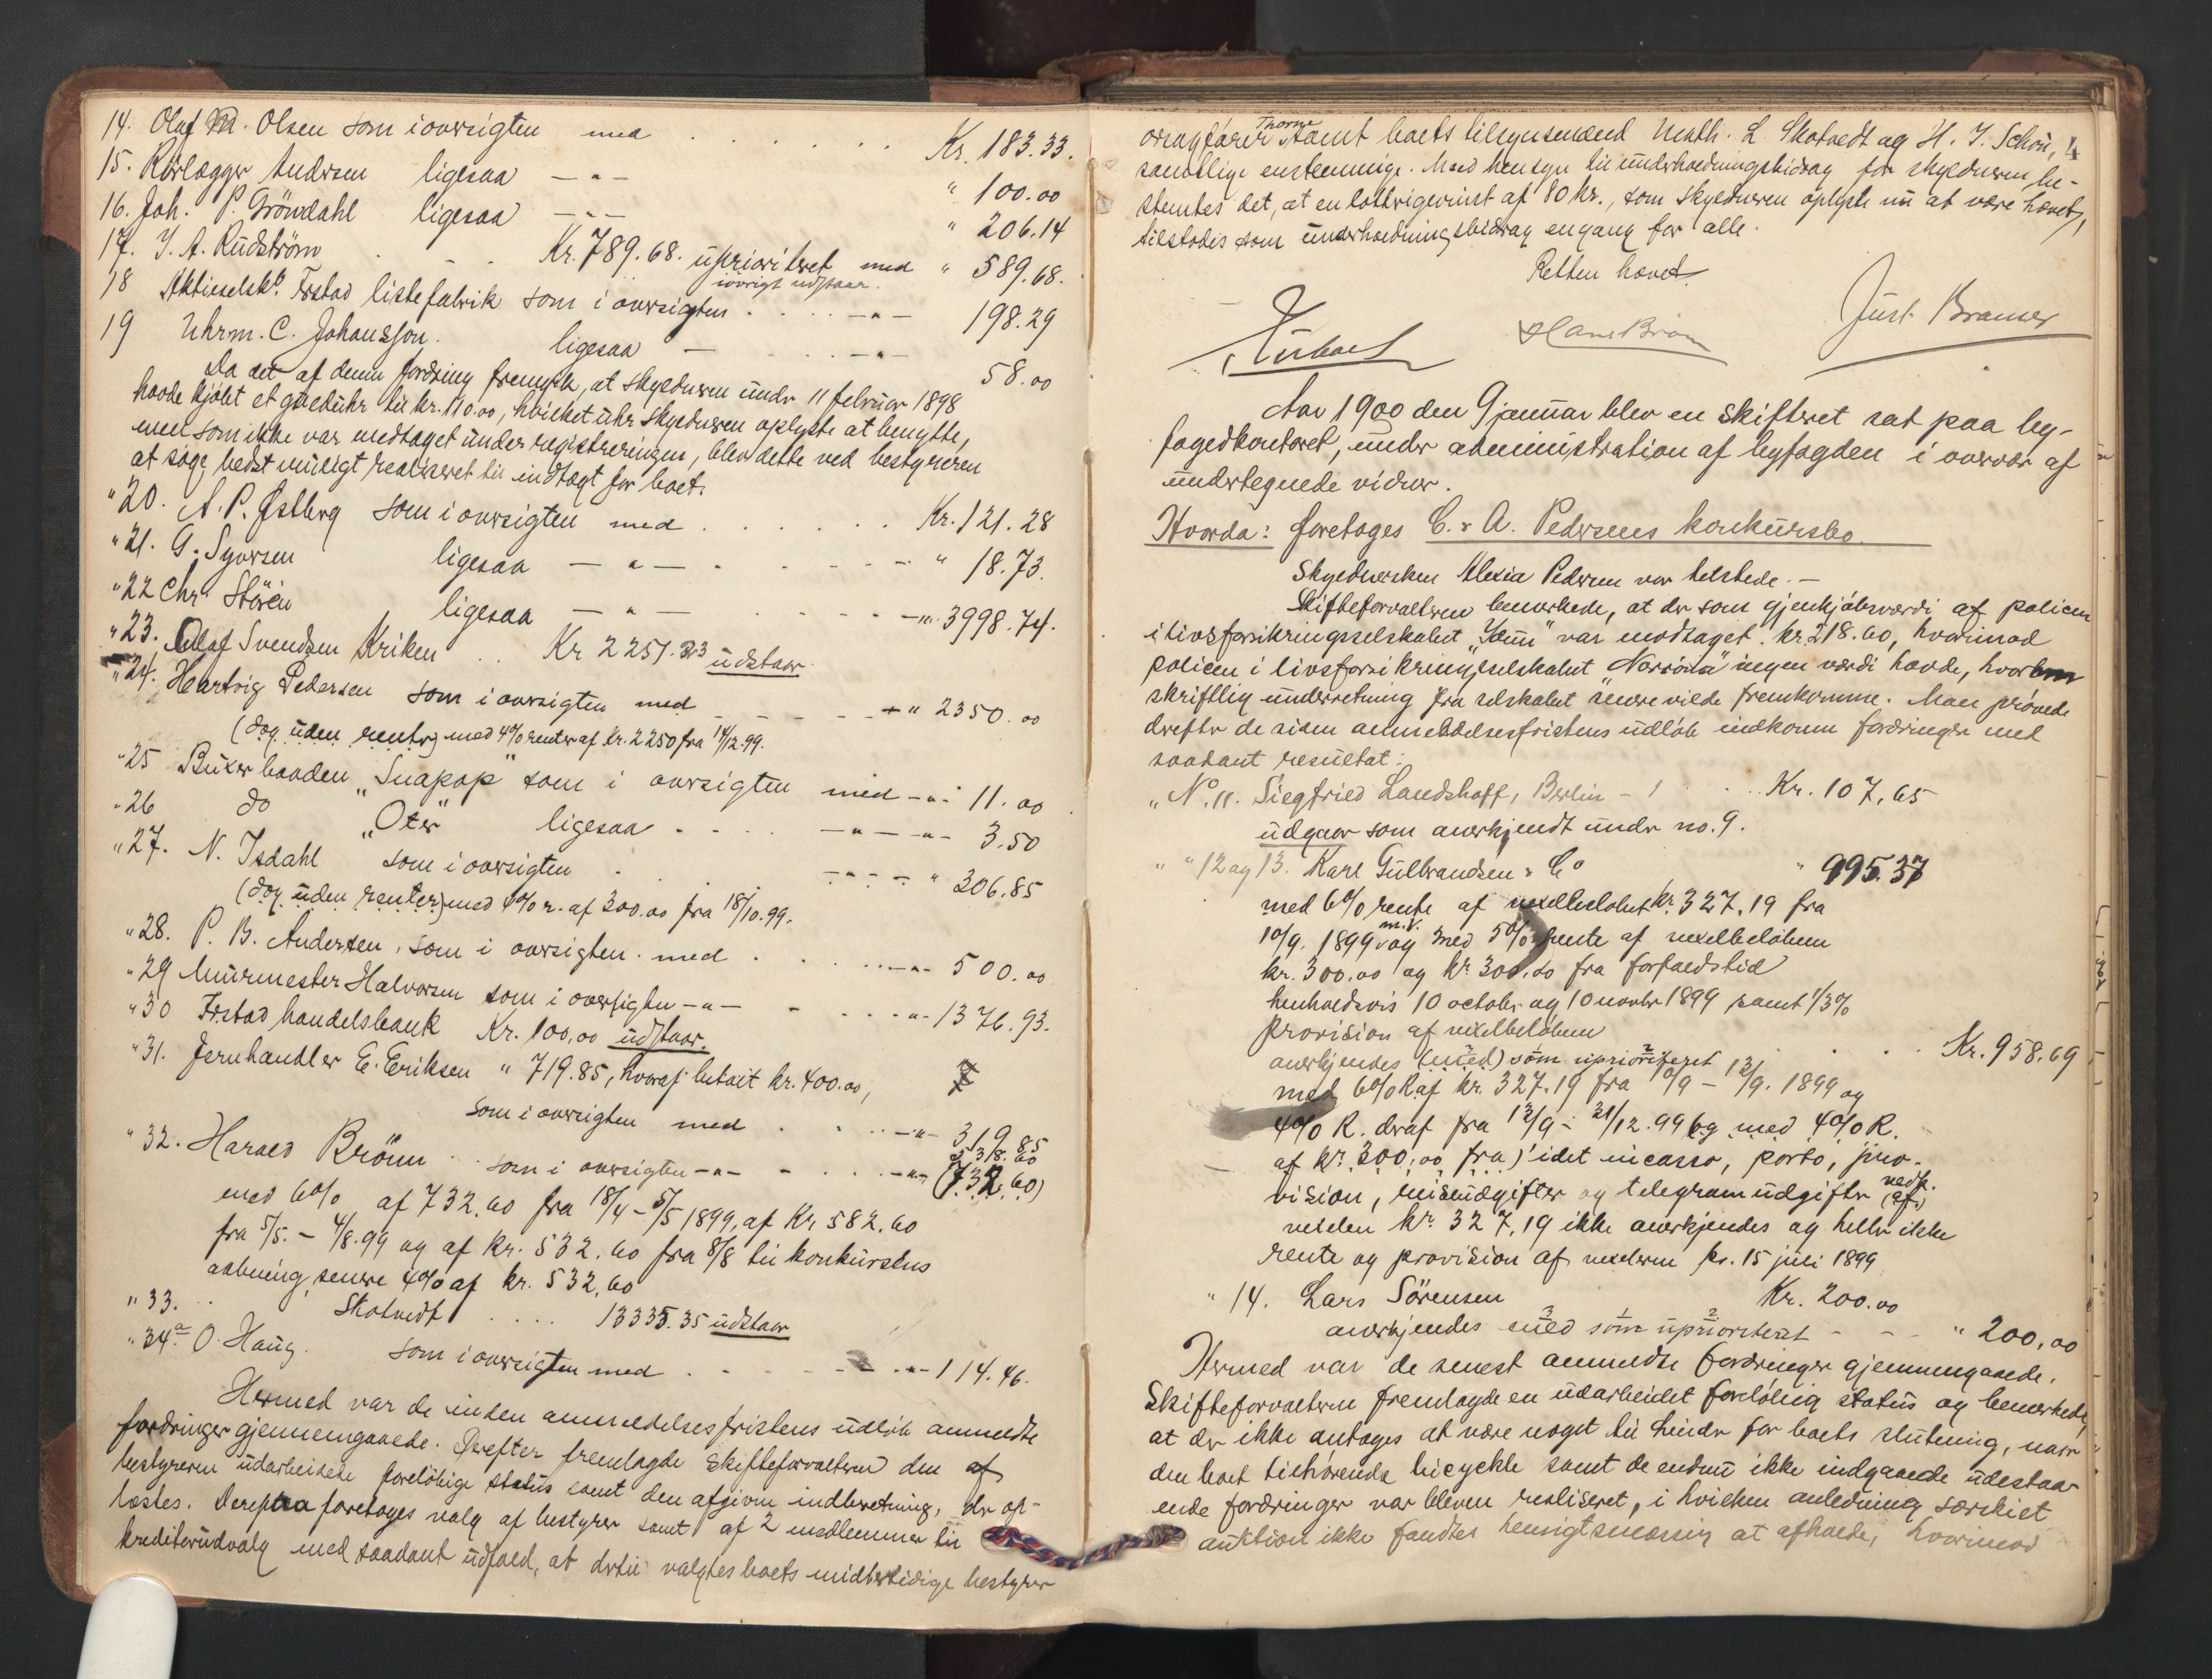 14. Olaf M. Olsen som i oversigten med . . . . . . Kr. 183.33.
15. Rörlægger Andersen ligesaa — " — " 100.00
16. Joh. P. Gröndahl ligesaa — " — " 206.14
17. J. A. Rudström . - . Kr. 789.68. uprioriteret med " 589.68.
iövrigt udstaar.
18 Aktieselsk. Frstad listefabrik som i oversigten . . . . — " — 198.29
19 Uhrm. C. Johansson. ligesaa — . . — " — 58.00
Da det af denne fordring fremgik, at skyldneren under 11 februar 1898
havde kjöbt et guldühr til kr. 110.00, hvilket uhr skyldneren oplyste at benytte,
men som ikke var medtaget under registreringen, blev dette ved bestyreren
at söge bedst muligt realiseret til indtægt for boet.
" 20. A. P. Østberg som i oversigten med . . . . . . Kr. 121.28
" 21. G. Syversen ligesaa — " — . . . . . " 18.73.
" 22 Chr. Stören ligesaa — " — . . . . — " 3998.74.
" 23. Olaf Svendsen Kriken . . Kr 2251.33 udstaar.
" 24. Hartvig Pedersen som i oversigten med . . . . — " 2350.00
(dog uden renter) med 4% renter af kr. 2250 fra 14/12.99.
" 25 Buxer baaden "Snapop" som i oversigten med — " — 11.00
" 26 do "Oter" ligesaa . . . . — " — " — 3.50
" 27. N. Isdahl som i oversigten . . — " — " 306.85
(dog uden renter) med 4% r. af 300.00 fra 18/10.99.
" 28. P. B. Andersen, som i oversigten med . . . . . — " — 500.00
" 29 Murmester Halvorsen som i oversigten — " — . . . . — " — 1376.93.
" 30 Frstad handelsbank Kr. 100.00 udstaar.
" 31. Jernhandler E. Eriksen " 719.85, hvoraf betalt kr. 400.00,
som i oversigten med . . . . — " — 319.85
538.60
" 32. Harald Brönn . . som i oversigten — " — . . — " — (732.60)
med 6% af 732.60 fra 18/4 – 5/5 1899, af Kr. 582.60
fra 5/5. – 4/8.99 og af kr. 532.60 fra 8/8 til konkursens
aabning, senere 4% af kr. 532.60
" 33. . . Skotvedt . . . . 13335.35 udstaar
" 34a O. Haug. som i oversigten med . . . . . — " — 114.46.
Hermed var de inden anmeldelsesfristens udlöb anmeldte
fordringer gjennemgaaede. Derefter fremlagde skifteforvalteren den af
bestyreren udarbeidede foreløbige status samt den afgivne indberetning, der op-
læstes. Derefter foretoges valg af bestyrer samt af 2 medlemmer til
kreditorudvalg med saadant udfald, at dertil valgtes boets midlertidige bestyrer
4
Thorne
overagfører samt boets tilsynsmænd Math. L. Skotvedt og H. J. Schöu,
samtlige enstemmige. Med hensyn til underholdningsbidrag for skyldneren be-
stemtes det, at en lottrigevinst af 80 kr., som skyldneren oplyste nu at være hævet,
tilstodes som underholdningsbidrag engang for alle.
Retten hævet.
Hans Brönn
Just. Bramer
Aar 1900 den 9 januar blev en skifteret sat paa by-
fogedkontoret, under administration af byfogden i overvær af
undertegnede vidner.
Hvorda: foretoges C. & A. Pedersens konkursbo.
Skyldnersken Alexia Pedersen var tilstede. —
Skifteforvalteren bemerkede, at der som gjenkjöbsværdi af policen
i livsforsikringsselskabet "Idun" var modtaget kr. 218.60, hvorimod
policen i livsforsikringsselskabet "Norröna" ingen værdi havde, hvorom
skriftlig underretning fra selskabet senere vilde fremkomme. Man prövede
derefter de siden anmeldelsesfristens udlöb indkomne fordringer med
saadant resultat:
" No. 11. Siegfried Landshoff, Berlin — . . Kr. 107,65
udgaar som anerkjendt under no. 9.
" " 12 og 13. Karl Gulbrandsen & Co " 995.37
med 6% rente af vexelbelöbet kr. 327.19 fra
10/9. 1899 m.v. og med 5% rente af vexelbelöbene
kr. 300.00 og kr. 300.00 fra forfaldstid
henholdsvis 10 october og 10 novbr 1899 samt 1/3%
provision af vexelbelöbene
anerkjendes (med) som uprioriteret . . . Kr. 958.69
med 6% R. af kr. 327.19 fra 10/9 – 12/9. 1899 og
4% R. deraf fra 12/9 – 31/12.99 og med 4% R.
af kr. 300.00 fra) idet incasso, porto, pro-
vision, reiseudgifter og telegramudgifter vedk. (af)
vexlen kr. 327.19 ikke anerkjendes og heller ikke
rente og provision af vexlerne pr. 15 juli 1899
" 14. Lars Sörensen Kr. 200.00
anerkjendes med som uprioriteret — — " 200.00
Hermed var de senest anmeldte fordringer gjennemgaaede.
Skifteforvalteren fremlagde en udarbeidet foreløbig status og bemerkede,
at der ikke antages at være noget til hinder for boets slutning, naar
den boet tilhørende bicyckle samt de endnu ikke indgaaede udestaa-
ende fordringer var bleven realiseret, i hvilken anledning særskilt
auktion ikke fandtes hensigtsmæssig at afholde, hvorimod